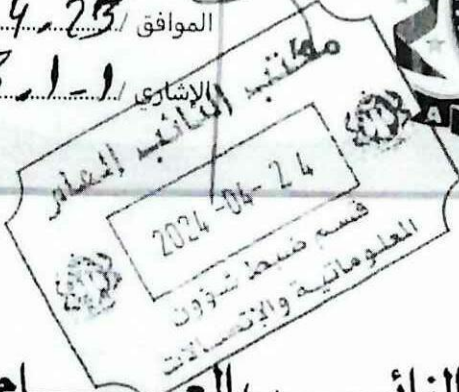 الموافق / 4.23
الإشاري / 1-1
مكتب النائب العام
2024-04-24
قسم ضبط شؤون
المعلوماتية والاتصالات